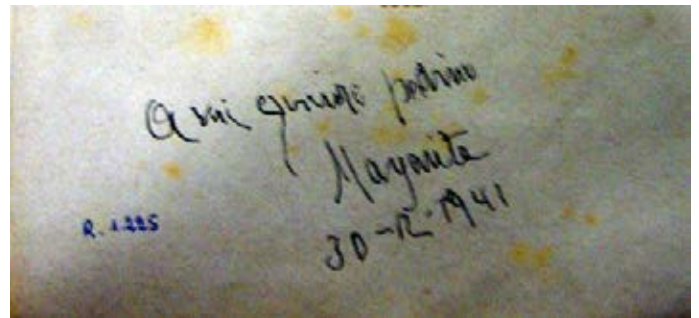 A mi querido padrino
Margarita
30-12-1941
R. 1.225